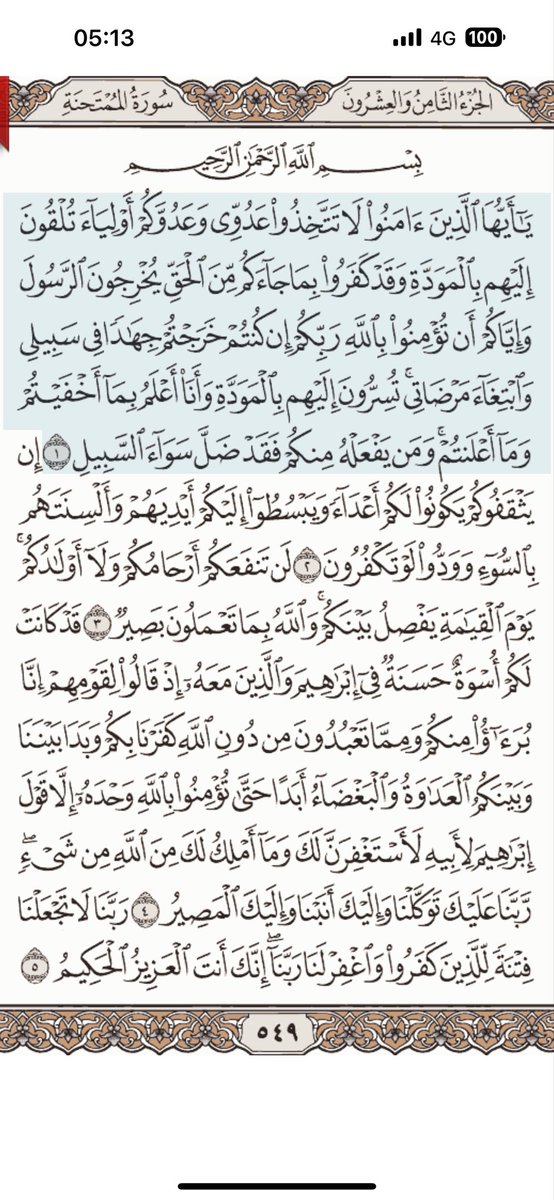 05:13 4G 100
الجزء الثامن والعشرون سورة الممتحنة
بِسْمِ ٱللَّهِ ٱلرَّحْمَٰنِ ٱلرَّحِيمِ
يَٰٓأَيُّهَا ٱلَّذِينَ ءَامَنُوا۟ لَا تَتَّخِذُوا۟ عَدُوِّى وَعَدُوَّكُمْ أَوْلِيَآءَ تُلْقُونَ
إِلَيْهِم بِٱلْمَوَدَّةِ وَقَدْ كَفَرُوا۟ بِمَا جَآءَكُم مِّنَ ٱلْحَقِّ يُخْرِجُونَ ٱلرَّسُولَ
وَإِيَّاكُمْ أَن تُؤْمِنُوا۟ بِٱللَّهِ رَبِّكُمْ إِن كُنتُمْ خَرَجْتُمْ جِهَٰدًا فِى سَبِيلِى
وَٱبْتِغَآءَ مَرْضَاتِى ۚ تُسِرُّونَ إِلَيْهِم بِٱلْمَوَدَّةِ وَأَنَا۠ أَعْلَمُ بِمَآ أَخْفَيْتُمْ
وَمَآ أَعْلَنتُمْ ۚ وَمَن يَفْعَلْهُ مِنكُمْ فَقَدْ ضَلَّ سَوَآءَ ٱلسَّبِيلِ ١ إِن
يَثْقَفُوكُمْ يَكُونُوا۟ لَكُمْ أَعْدَآءً وَيَبْسُطُوٓا۟ إِلَيْكُمْ أَيْدِيَهُمْ وَأَلْسِنَتَهُم
بِٱلسُّوٓءِ وَوَدُّوا۟ لَوْ تَكْفُرُونَ ٢ لَن تَنفَعَكُمْ أَرْحَامُكُمْ وَلَآ أَوْلَٰدُكُمْ ۚ
يَوْمَ ٱلْقِيَٰمَةِ يَفْصِلُ بَيْنَكُمْ ۚ وَٱللَّهُ بِمَا تَعْمَلُونَ بَصِيرٌ ٣ قَدْ كَانَتْ
لَكُمْ أُسْوَةٌ حَسَنَةٌ فِىٓ إِبْرَٰهِيمَ وَٱلَّذِينَ مَعَهُۥٓ إِذْ قَالُوا۟ لِقَوْمِهِمْ إِنَّا
بُرَءَٰٓؤُا۟ مِنكُمْ وَمِمَّا تَعْبُدُونَ مِن دُونِ ٱللَّهِ كَفَرْنَا بِكُمْ وَبَدَا بَيْنَنَا
وَبَيْنَكُمُ ٱلْعَدَٰوَةُ وَٱلْبَغْضَآءُ أَبَدًا حَتَّىٰ تُؤْمِنُوا۟ بِٱللَّهِ وَحْدَهُۥٓ إِلَّا قَوْلَ
إِبْرَٰهِيمَ لِأَبِيهِ لَأَسْتَغْفِرَنَّ لَكَ وَمَآ أَمْلِكُ لَكَ مِنَ ٱللَّهِ مِن شَىْءٍ ۖ
رَّبَّنَا عَلَيْكَ تَوَكَّلْنَا وَإِلَيْكَ أَنَبْنَا وَإِلَيْكَ ٱلْمَصِيرُ ٤ رَبَّنَا لَا تَجْعَلْنَا
فِتْنَةً لِّلَّذِينَ كَفَرُوا۟ وَٱغْفِرْ لَنَا رَبَّنَآ ۖ إِنَّكَ أَنتَ ٱلْعَزِيزُ ٱلْحَكِيمُ ٥
٥٤٩